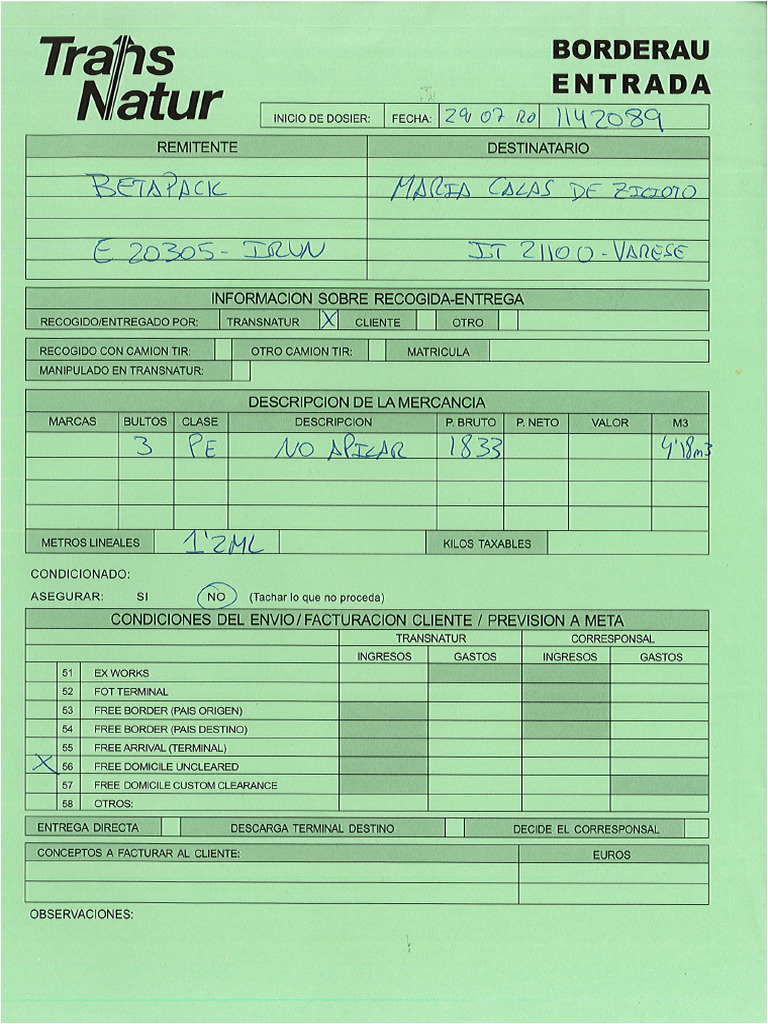 Trans Natur
BORDERAU
ENTRADA
INICIO DE DOSIER: FECHA: 29 07 20 1142089
REMITENTE DESTINATARIO
BETAPACK MARIA CALAS DE ZICIOTO
E 20305 - IRUN IT 21100 - VARESE
INFORMACION SOBRE RECOGIDA-ENTREGA
RECOGIDO/ENTREGADO POR: TRANSNATUR X CLIENTE OTRO
RECOGIDO CON CAMION TIR: OTRO CAMION TIR: MATRICULA
MANIPULADO EN TRANSNATUR:
DESCRIPCION DE LA MERCANCIA
MARCAS BULTOS CLASE DESCRIPCION P. BRUTO P. NETO VALOR M3
3 PE NO APILAR 1833 4'18m3
METROS LINEALES 1'2ML KILOS TAXABLES
CONDICIONADO:
ASEGURAR: SI NO (Tachar lo que no proceda)
CONDICIONES DEL ENVIO/FACTURACION CLIENTE / PREVISION A META
TRANSNATUR CORRESPONSAL
INGRESOS GASTOS INGRESOS GASTOS
51 EX WORKS
52 FOT TERMINAL
53 FREE BORDER (PAIS ORIGEN)
54 FREE BORDER (PAIS DESTINO)
55 FREE ARRIVAL (TERMINAL)
X 56 FREE DOMICILE UNCLEARED
57 FREE DOMICILE CUSTOM CLEARANCE
58 OTROS:
ENTREGA DIRECTA DESCARGA TERMINAL DESTINO DECIDE EL CORRESPONSAL
CONCEPTOS A FACTURAR AL CLIENTE: EUROS
OBSERVACIONES: